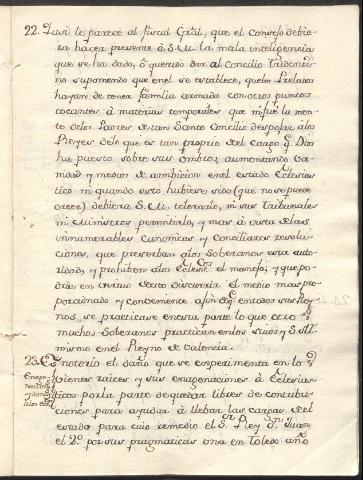 22. Casi le parece al fiscal Gral, que el consejo debie-
ra hacer presente à S.M. la mala inteligencia
que se ha dado, ò querido dar al Concilio Tridenti-
no suponiendo que en el se establece, que los Prelados
hayan de tener familia armada con otros puntos
tocantes à materias temporales que ni fue la men-
te de los Padres de tan Santo Concilio despojar à los
Reyes de lo que es tan proprio del cargo q Dios
ha puesto sobre sus ombros, aumentando va-
nidad y medios de ambicion en el estado Eclesias-
tico ni quando esto hubiese sido (que no se puede
creer) debiera S.M. tolerarlo, ni sus tribunales
ni Ministros permitirlo, y mas à vista de las
innumerables Canonicas y Conciliares resolu-
ciones, que preserban à los Soberanos esta auto-
ridad, y prohiben à los Eclesicos el manejo; y que po-
dria en virtud de esto discurrir el medio mas pro-
porcionado y conveniente à fin de q en todos sus Rey-
nos se practicase en esta parte lo que otros
muchos Soberanos practican en los suios y S.M.
mismo en el Reyno de Valencia.
23. Es notorio el daño que se experimenta en los
Vienes raices y sus enagenaciones à Eclesias-
ticos por la parte de quedar libres de contribu-
ciones para ayudar à llebar las cargas del
estado para cuio remedio el Sr. Rey Dn. Juan
el 2º. por sus pragmaticas una en Toledo año